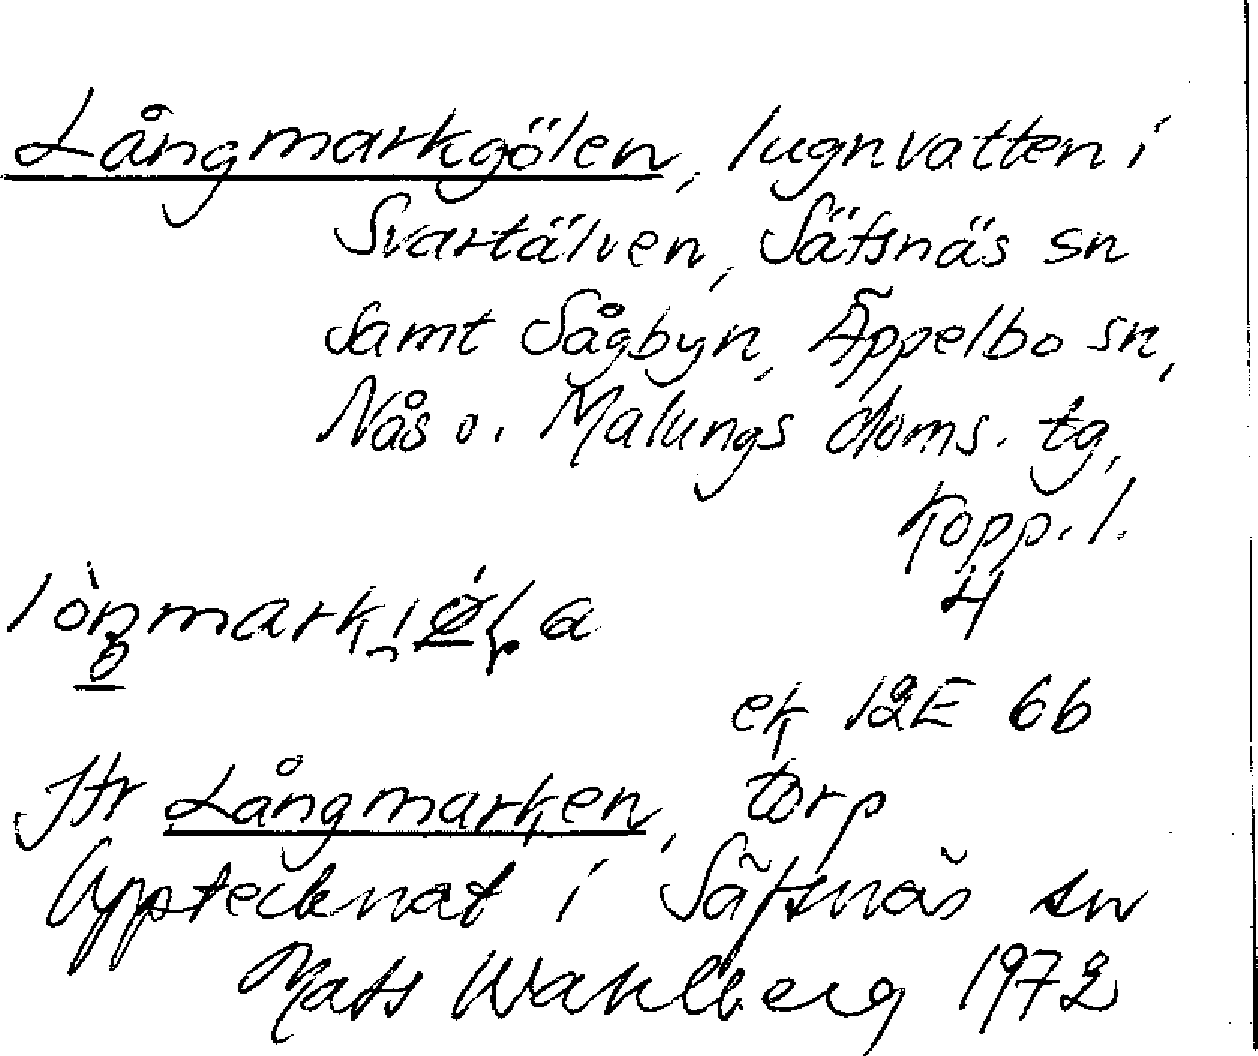 Långmarkgölen, lugnvatten i
Svartälven, Säfsnäs sn
samt Sågbyn, Äppelbo sn,
Nås o. Malungs doms. tg,
Kopp. l.
4
ek 12E 6b
Jfr Långmarken, torp
Upptecknat i Säfsnäs sn
Mats Wahlberg 1972